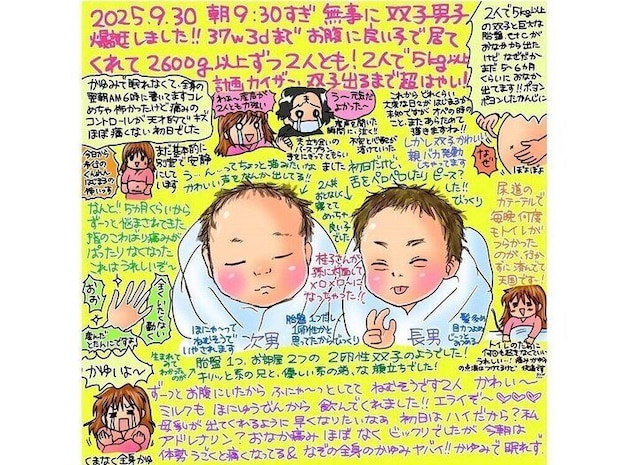 2025.9.30 朝9:30すぎ 無事に 双子男子
爆誕しました!! 37w3dまで お腹に良い子で居て
くれて 2600g以上ずつ 2人とも! 2人で5kg以上
計画カイザー 双子出るまで超はやい!
2人で5kg以上
の双子と巨大な
胎盤.etcが
おなかから出た
けど なぜだか
まだ5〜6カ月
くらいに おなか
出てます!! ポヨン
ポヨンしたかんじに
なぜ
ぽよぽよ
かゆみで眠れなくて、全身の
翌朝AM6時に書いてますコレ
めちゃ怖かったけど痛みの
コントロールが天才的でキズ
ほぼ痛くない初日でした
わぁ〜産声が
2人とも力強い
う〜元気だ
よかった〜
産声聞いた
瞬間に泣く!!
立ち会いの
不安と心配が
溶けていった
これから
大変な日々が
こと、またあらためて
描きますね!!
しかし双子かわいい
親バカ発動
しちゃってます
今日から
歩行の
くんれん
はじまるの
怖いっす
まだ基本的に
別室で安静
にしています
う…ん…ってちょっと痛みたいな
かわいい声をなんか出してる!!
ました 初日だけど
舌をペロペロしたり ピース?
したり!!
びっくり
2人共
おとなしく
寝てて
めちゃ
良い子
でした
なんと!! 5カ月くらいから
ずーっと悩まされてきた
指のこわばり痛みが
ぱったりなくなった
これはうれしいぞ〜
尿道の
カテーテルで
毎晩何度
もトイレが
つらかった
のが、行か
ずに済んでて
天国です〜!
桂子さんが
孫に対面して
×o×o〜に
なっちゃった!!
おお
全く
いたく
なく
動く
産んだ
とたんにですよ
ほにゃ〜って
ねむそうで
いやされます
次男
胎盤1つだし
1卵性かと
思ってたから びっくり
長男
髪多め
目力つよめ
トイレのために
何回も起きなくていい
うれしい…!
かゆいよ〜
生まれて
わかった
のが
胎盤1つ、お部屋2つの 2卵性双子のようでした!
キリッと系の兄と、優しい系の弟、な顔立ちでした!
ずーっとお腹にいたから ふにゃ〜っとしてて ねむそうです2人 かわい〜
ミルクも ほにゅうびんから 飲んでくれました!! エライぞ〜♡♡♡
母乳が 出てくれるように 早くなりたいなあ 初日はハイだから? 私
アドレナリン? おなか痛み ほぼ なく ビックリでしたが 今朝は
体勢 うごくと痛くなってる& なぞの全身のかゆみ ヤバイ!! かゆみで眠れず.
くまなく全身かゆ